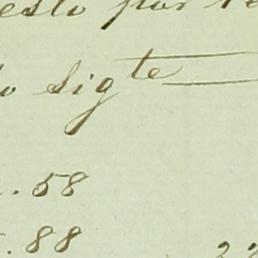 esto por
lo Sigte
. 58
. 88